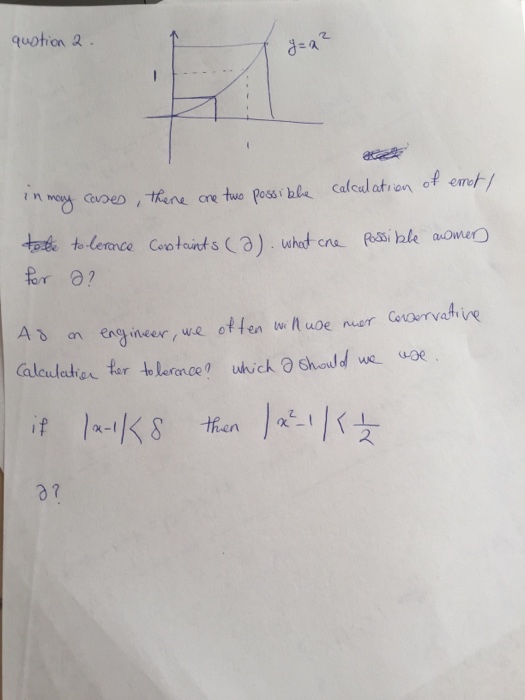 quotion 2.
y=x²
1
1
in many cases, there are two possible calculation of error/
tolerance constaints (∂). what are possible answers
for ∂?
As an engineer, we often will use mor conservative
calculation for tolerance? which ∂ should we use.
if |x-1|<δ then |x²-1|<1/2
∂?